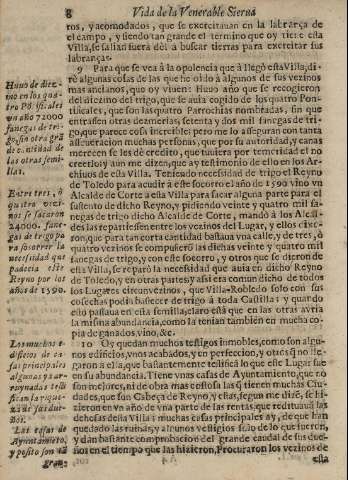 8 Vida de la Venerable Sierua
ros, y acomodados, que se exercitauan en la labrança de
el campo, y siendo tan grande el termino que oy tiene esta
Villa, se salian fuera dèl à buscar tierras para exercitar sus
labranças.
9 Para que se vea à la opulencia que à llegò esta Villa, di-
rè algunas cosas de las que he oido à algunos de sus vezinos
mas ancianos, que oy viuen: Huuo año que se recogieron
del diezmo de trigo, que se auia cogido de los quatro Pon-
tificales, que son las quatro Parrochias nombradas, sin que
entrassen otras desmerias, setenta y dos mil fanegas de tri-
go, que parece cosa increible; pero me lo asseguran con tanta
asseueracion muchas personas, que por su autoridad, y canas
merecen se les dè credito, que tuuiera por temeridad el no
creerlo; y aun me dizen, que ay testimonio de ello en los Ar-
chiuos de esta Villa. Teniendo necessidad de trigo el Reyno
de Toledo para acudir à este socorro el año de 1590 vino vn
Alcalde de Corte à esta Villa para sacar alguna parte para el
sustento de dicho Reyno, y pidiendo veinte y quatro mil fa-
negas de trigo dicho Alcalde de Corte, mandò à los Alcal-
des las repartiessen entre los vezinos del Lugar, y ellos dixe-
ron, que para tan corta cantidad bastaua vna calle, y de tres, ò
quatro vezinos se compusieron las dichas veinte y quatro mil
fanegas de trigo, y con este socorro, y otros que se dieron de
esta Villa, se reparò la necessidad que auia en dicho Reyno
de Toledo, y en otras partes, y assi era comun dicho de todos
los Lugares circunvezinos, que Villa-Robledo solo con sus
cosechas podia bastecer de trigo à toda Castilla; y quando
esto passaua en esta semilla, claro està que en las otras avria
la misma abundancia, como la tenian tambien en mucha co
pia de ganados, vino, &c.
10 Oy quedan muchos testigos inmobles, como son algu-
nos edificios, vnos acabados, y en perfeccion, y otros q̃ no lle-
garon à ella, que bastantemente testifica lo que este Lugar fue
en su abundancia. Tiene vnas casas de Ayuntamiento, que no
son mejores, ni de obra mas costosa las q̃ tienen muchas Ciu-
dades, que son Cabeça de Reyno, y estas, segun me dizē, se hi-
zieron en vn año de vna parte de las rentas, que redituauā las
dehesas desta Villa: muchas casas principales ay, de que han
quedado las ruinas, y algunos vestigios solo de lo que fueron,
y dan bastante comprobacion del grande caudal de sus due-
ños en el tiempo que las hizieron. Procuraron los vezinos de
esta
Huuo de diez-
mo en los qua-
tro Pōtificales
vn año 72000
fanegas de tri-
go, sin otra grā
cantidad de
las otras semi-
llas.
Entre tres, ò
quatro vezi-
nos se sacaron
24000. fane-
gas de trigo pa
ra socorrer la
necessidad que
padecia este
Reyno por los
años de 1590.
Los muchos e-
dificios de ca-
sas principales
algunas ya ar-
ruynadas testi
fican la rique-
za de sus due-
ños.
Las casas de
Ayuntamiēto,
y posito son vn